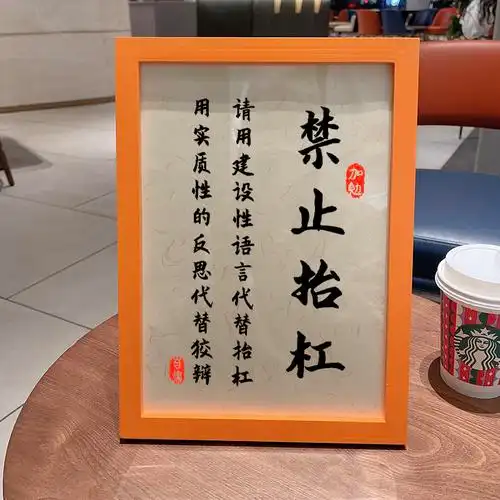 禁止抬杠
加勉
请用建设性语言代替抬杠
用实质性的反思代替狡辩